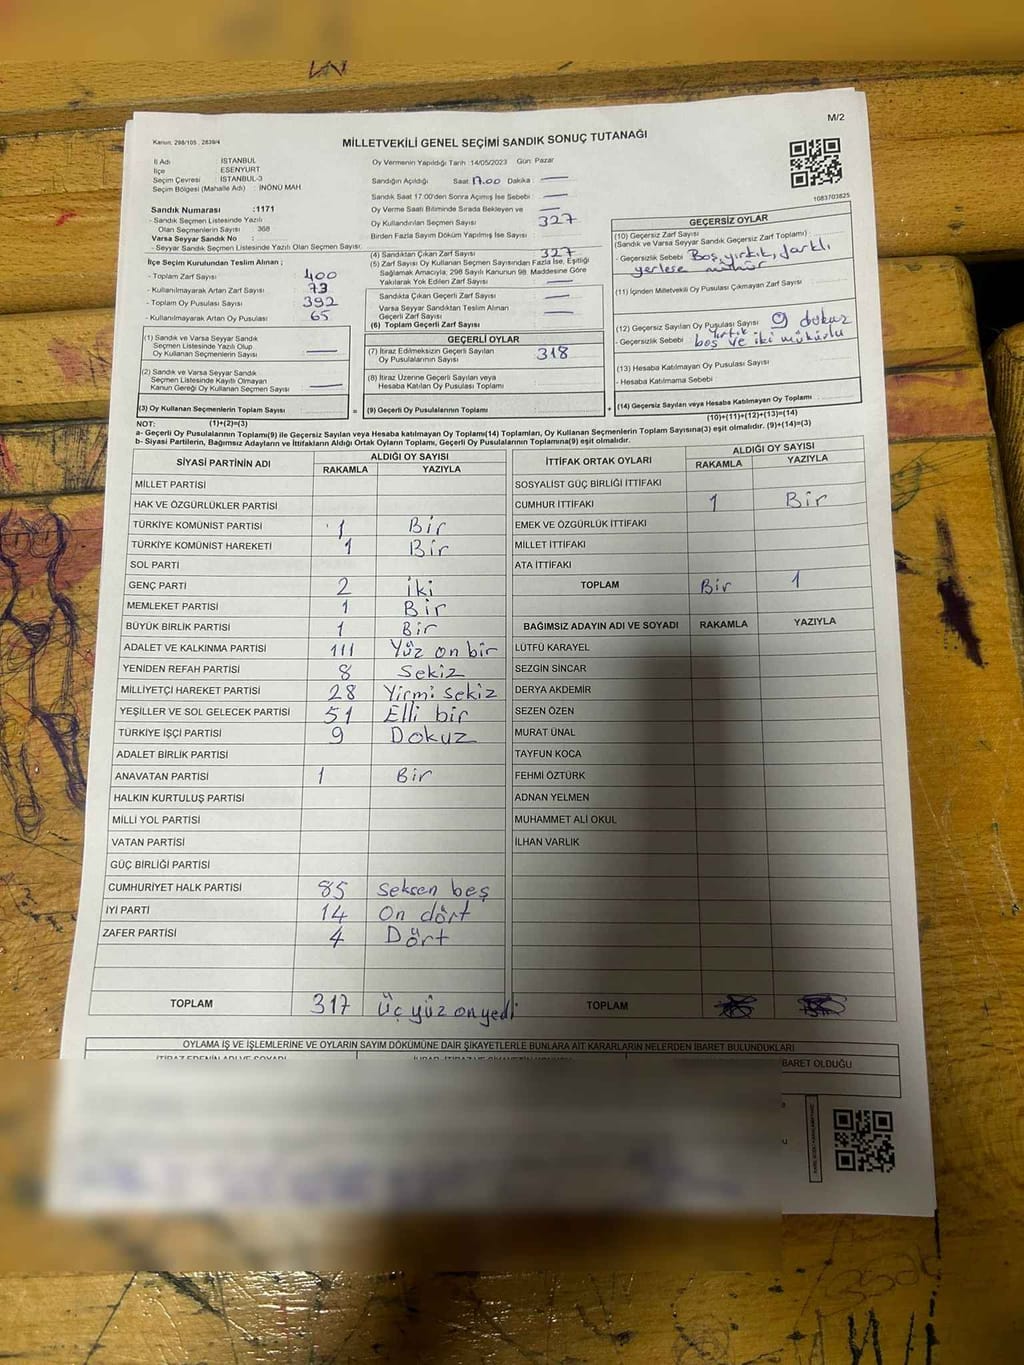 M/2
Kanun: 298/105 , 2839/4
MİLLETVEKİLİ GENEL SEÇİMİ SANDIK SONUÇ TUTANAĞI
İl Adı İSTANBUL
İlçe ESENYURT
Seçim Çevresi İSTANBUL-3
Seçim Bölgesi (Mahalle Adı) : İNÖNÜ MAH.
Sandık Numarası :1171
- Sandık Seçmen Listesinde Yazılı
Olan Seçmenlerin Sayısı 368
Varsa Seyyar Sandık No :
- Seyyar Sandık Seçmen Listesinde Yazılı Olan Seçmen Sayısı:
İlçe Seçim Kurulundan Teslim Alınan ;
- Toplam Zarf Sayısı 400
- Kullanılmayarak Artan Zarf Sayısı 73
- Toplam Oy Pusulası Sayısı 392
- Kullanılmayarak Artan Oy Pusulası 65
(1) Sandık ve Varsa Seyyar Sandık
Seçmen Listesinde Yazılı Olup
Oy Kullanan Seçmenlerin Sayısı —
(2) Sandık ve Varsa Seyyar Sandık
Seçmen Listesinde Kayıtlı Olmayan
Kanun Gereği Oy Kullanan Seçmen Sayısı —
(3) Oy Kullanan Seçmenlerin Toplam Sayısı
(1)+(2)=(3)
Oy Vermenin Yapıldığı Tarih :14/05/2023 Gün: Pazar
Sandığın Açıldığı Saat 17.00 Dakika : —
Sandık Saat 17:00'den Sonra Açılmış İse Sebebi : —
Oy Verme Saati Bitiminde Sırada Bekleyen ve —
Oy Kullandırılan Seçmen Sayısı 327
Birden Fazla Sayım Döküm Yapılmış İse Sayısı
(4) Sandıktan Çıkan Zarf Sayısı 327
(5) Zarf Sayısı Oy Kullanan Seçmen Sayısından Fazla İse, Eşitliği
Sağlamak Amacıyla; 298 Sayılı Kanunun 98. Maddesine Göre
Yakılarak Yok Edilen Zarf Sayısı —
Sandıkta Çıkan Geçerli Zarf Sayısı —
Varsa Seyyar Sandıktan Teslim Alınan
Geçerli Zarf Sayısı —
(6) Toplam Geçerli Zarf Sayısı
GEÇERLİ OYLAR
(7) İtiraz Edilmeksizin Geçerli Sayılan
Oy Pusulalarının Sayısı 318
(8) İtiraz Üzerine Geçerli Sayılan veya
Hesaba Katılan Oy Pusulası Toplamı
= (9) Geçerli Oy Pusulalarının Toplamı
1083703825
GEÇERSİZ OYLAR
(10) Geçersiz Zarf Sayısı
(Sandık ve Varsa Seyyar Sandık Geçersiz Zarf Toplamı) :
- Geçersizlik Sebebi Boş, yırtık, farklı
yerlese mühür
(11) İçinden Milletvekili Oy Pusulası Çıkmayan Zarf Sayısı
(12) Geçersiz Sayılan Oy Pusulası Sayısı 9 dokuz
- Geçersizlik Sebebi yırtık boş ve iki mühürlü
(13) Hesaba Katılmayan Oy Pusulası Sayısı
- Hesaba Katılmama Sebebi
+ (14) Geçersiz Sayılan veya Hesaba Katılmayan Oy Toplamı
(10)+(11)+(12)+(13)=(14)
NOT:
a- Geçerli Oy Pusulalarının Toplamı(9) ile Geçersiz Sayılan veya Hesaba katılmayan Oy Toplamı(14) Toplamları, Oy Kullanan Seçmenlerin Toplam Sayısına(3) eşit olmalıdır. (9)+(14)=(3)
b- Siyasi Partilerin, Bağımsız Adayların ve İttifakların Aldığı Ortak Oyların Toplamı, Geçerli Oy Pusulalarının Toplamına(9) eşit olmalıdır.
SİYASİ PARTİNİN ADI ALDIĞI OY SAYISI
RAKAMLA YAZIYLA
MİLLET PARTİSİ
HAK VE ÖZGÜRLÜKLER PARTİSİ
TÜRKİYE KOMÜNİST PARTİSİ 1 Bir
TÜRKİYE KOMÜNİST HAREKETİ 1 Bir
SOL PARTİ
GENÇ PARTİ 2 iki
MEMLEKET PARTİSİ 1 Bir
BÜYÜK BİRLİK PARTİSİ 1 Bir
ADALET VE KALKINMA PARTİSİ 111 Yüz on bir
YENİDEN REFAH PARTİSİ 8 Sekiz
MİLLİYETÇİ HAREKET PARTİSİ 28 Yirmi sekiz
YEŞİLLER VE SOL GELECEK PARTİSİ 51 Elli bir
TÜRKİYE İŞÇİ PARTİSİ 9 Dokuz
ADALET BİRLİK PARTİSİ
ANAVATAN PARTİSİ 1 Bir
HALKIN KURTULUŞ PARTİSİ
MİLLİ YOL PARTİSİ
VATAN PARTİSİ
GÜÇ BİRLİĞİ PARTİSİ
CUMHURİYET HALK PARTİSİ 85 Seksen beş
İYİ PARTİ 14 On dört
ZAFER PARTİSİ 4 Dört
TOPLAM 317 Üç yüz onyedi
İTTİFAK ORTAK OYLARI ALDIĞI OY SAYISI
RAKAMLA YAZIYLA
SOSYALİST GÜÇ BİRLİĞİ İTTİFAKI
CUMHUR İTTİFAKI 1 Bir
EMEK VE ÖZGÜRLÜK İTTİFAKI
MİLLET İTTİFAKI
ATA İTTİFAKI
TOPLAM Bir 1
BAĞIMSIZ ADAYIN ADI VE SOYADI RAKAMLA YAZIYLA
LÜTFÜ KARAYEL
SEZGİN SİNCAR
DERYA AKDEMİR
SEZEN ÖZEN
MURAT ÜNAL
TAYFUN KOCA
FEHMİ ÖZTÜRK
ADNAN YELMEN
MUHAMMET ALİ OKUL
İLHAN VARLIK
TOPLAM
OYLAMA İŞ VE İŞLEMLERİNE VE OYLARIN SAYIM DÖKÜMÜNE DAİR ŞİKAYETLERLE BUNLARA AİT KARARLARIN NELERDEN İBARET BULUNDUKLARI
BARET OLDUĞU